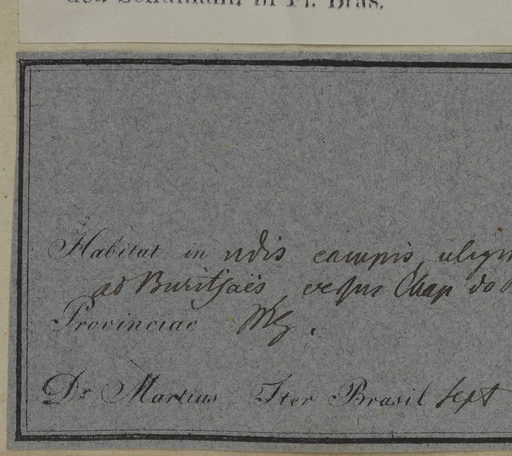 Schumann in Fl. Bras.
Habitat in udis campis, uligin
ad Buritisaës versus Chap do
Provinciae MG.
Dr Martius Iter Brasil Sept